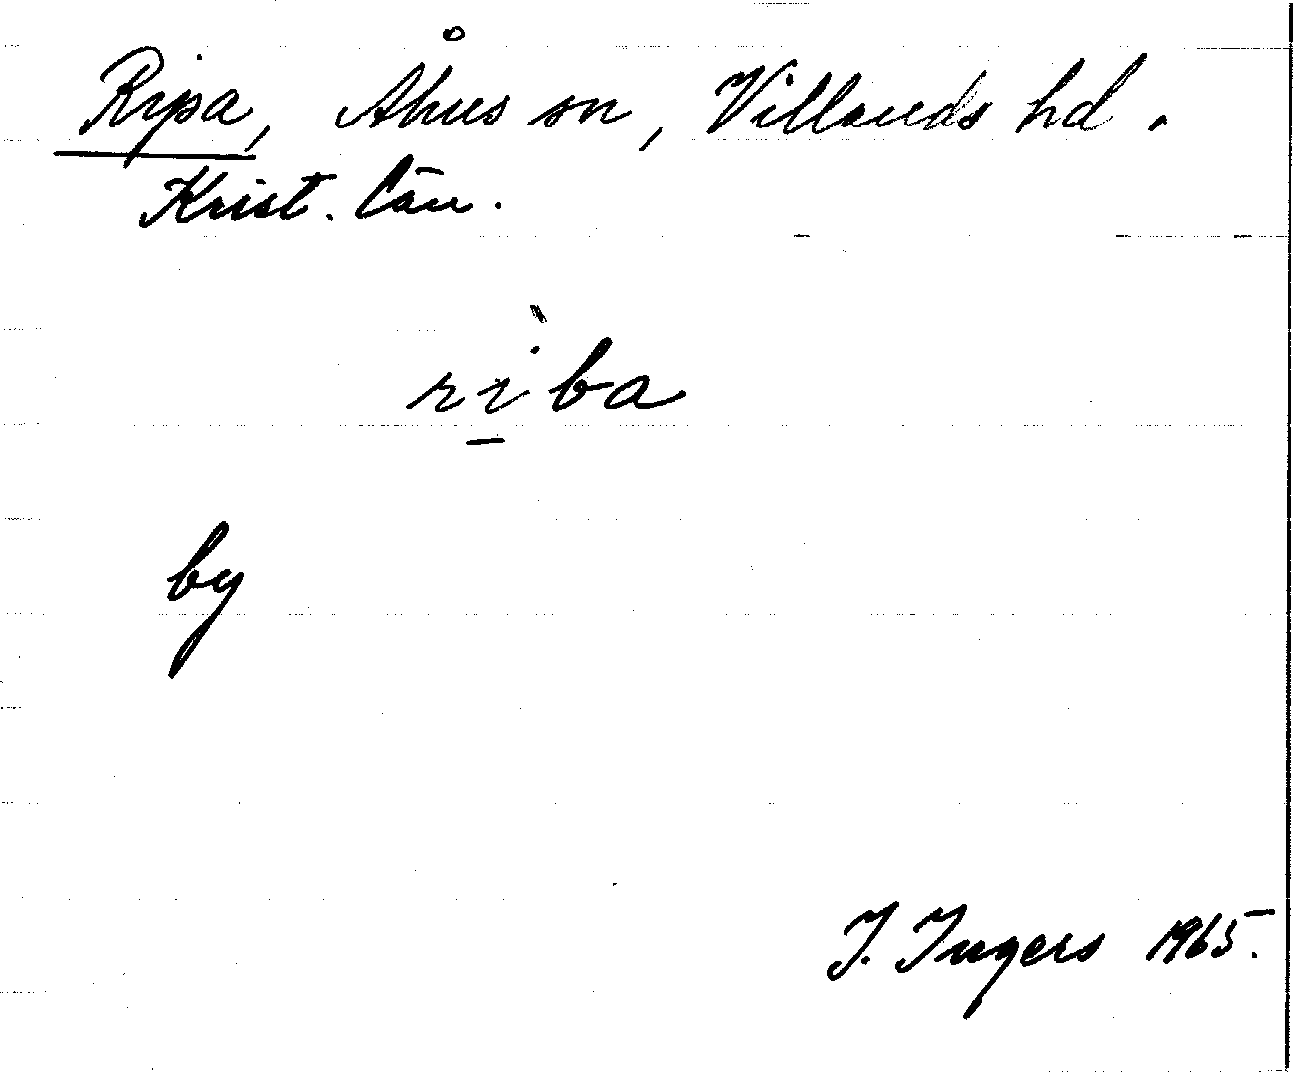 Ripa, Åhus sn, Villands hd.
Krist. län.
rì̱ba
by
I. Ingers 1965.